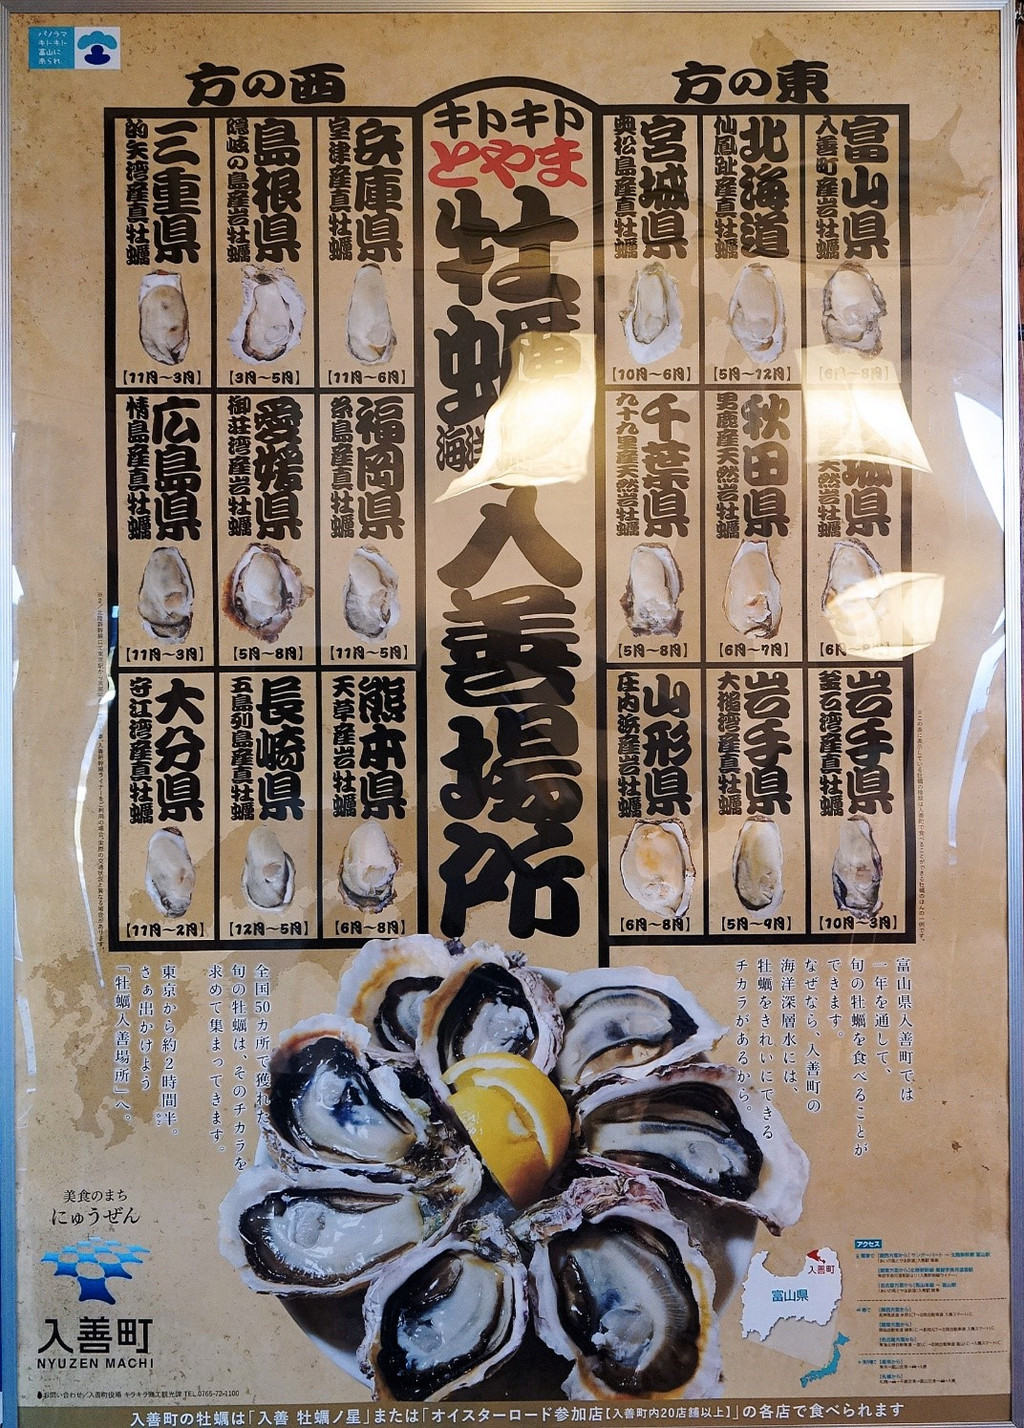 パノラマ
キトキト
富山に
来られ
東の方
西の方
キトキト
とやま
牡蠣
入善場所
富山県
入善町産岩牡蠣
北海道
仙鳳趾産真牡蠣
【5月〜12月】
宮城県
奥松島産真牡蠣
【10月〜6月】
秋田県
男鹿産天然岩牡蠣
【6月〜7月】
千葉県
九十九里産天然岩牡蠣
【5月〜8月】
岩手県
釜石湾産真牡蠣
【10月〜3月】
岩手県
大槌湾産真牡蠣
【5月〜9月】
山形県
庄内浜産岩牡蠣
【6月〜8月】
兵庫県
室津産真牡蠣
【11月〜6月】
島根県
隠岐の島産岩牡蠣
【3月〜5月】
三重県
的矢湾産真牡蠣
【11月〜3月】
福岡県
糸島産真牡蠣
【11月〜5月】
愛媛県
御荘湾産岩牡蠣
【5月〜8月】
広島県
情島産真牡蠣
【11月〜3月】
熊本県
天草産岩牡蠣
【6月〜8月】
長崎県
五島列島産真牡蠣
【12月〜5月】
大分県
守江湾産真牡蠣
【11月〜2月】
富山県入善町では
一年を通して、
旬の牡蠣を食べることが
できます。
なぜなら、入善町の
海洋深層水には、
牡蠣をきれいにできる
チカラがあるから。
全国50カ所で獲れた
旬の牡蠣は、そのチカラを
求めて集まってきます。
東京から約2時間半。※2
さぁ出かけよう
「牡蠣入善場所」へ。
美食のまち
にゅうぜん
入善町
NYUZEN MACHI
お問い合わせ／入善町役場 キラキラ商工観光課 TEL.0765-72-1100
入善町
富山県
アクセス
入善町の牡蠣は「入善 牡蠣ノ星」または「オイスターロード参加店【入善町内20店舗以上】」の各店で食べられます